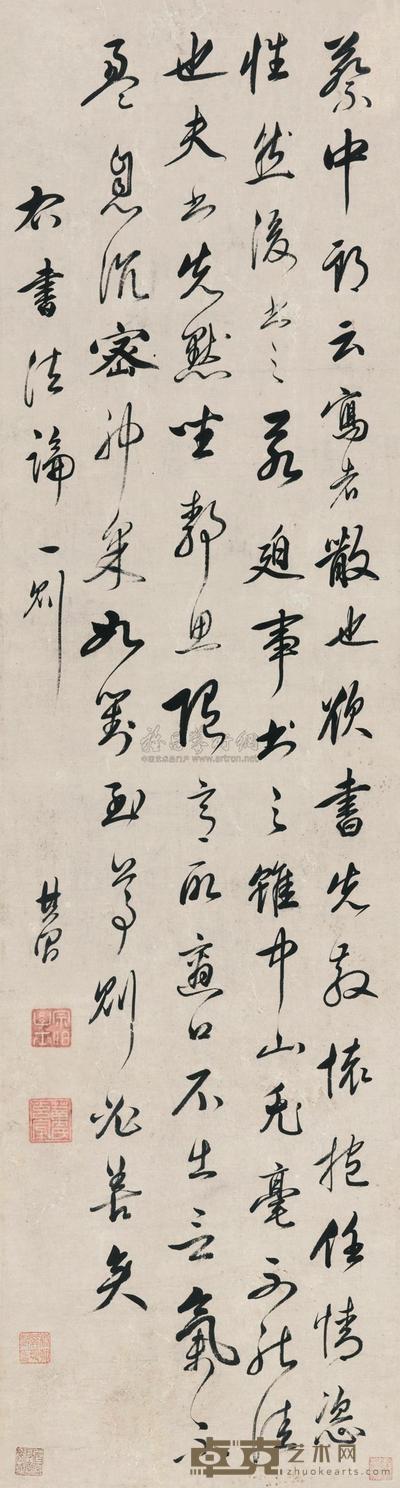 蔡中郎云寫者散也欲書先散懷抱任情恣
性然後書之若迫事書之雖中山兔毫不能佳
也夫書先默坐靜思隨意所適口不出言氣不
盈息沉密神采如對至尊則必善矣
右書法論一則
其昌
卓克艺术网
www.zhuokearts.com